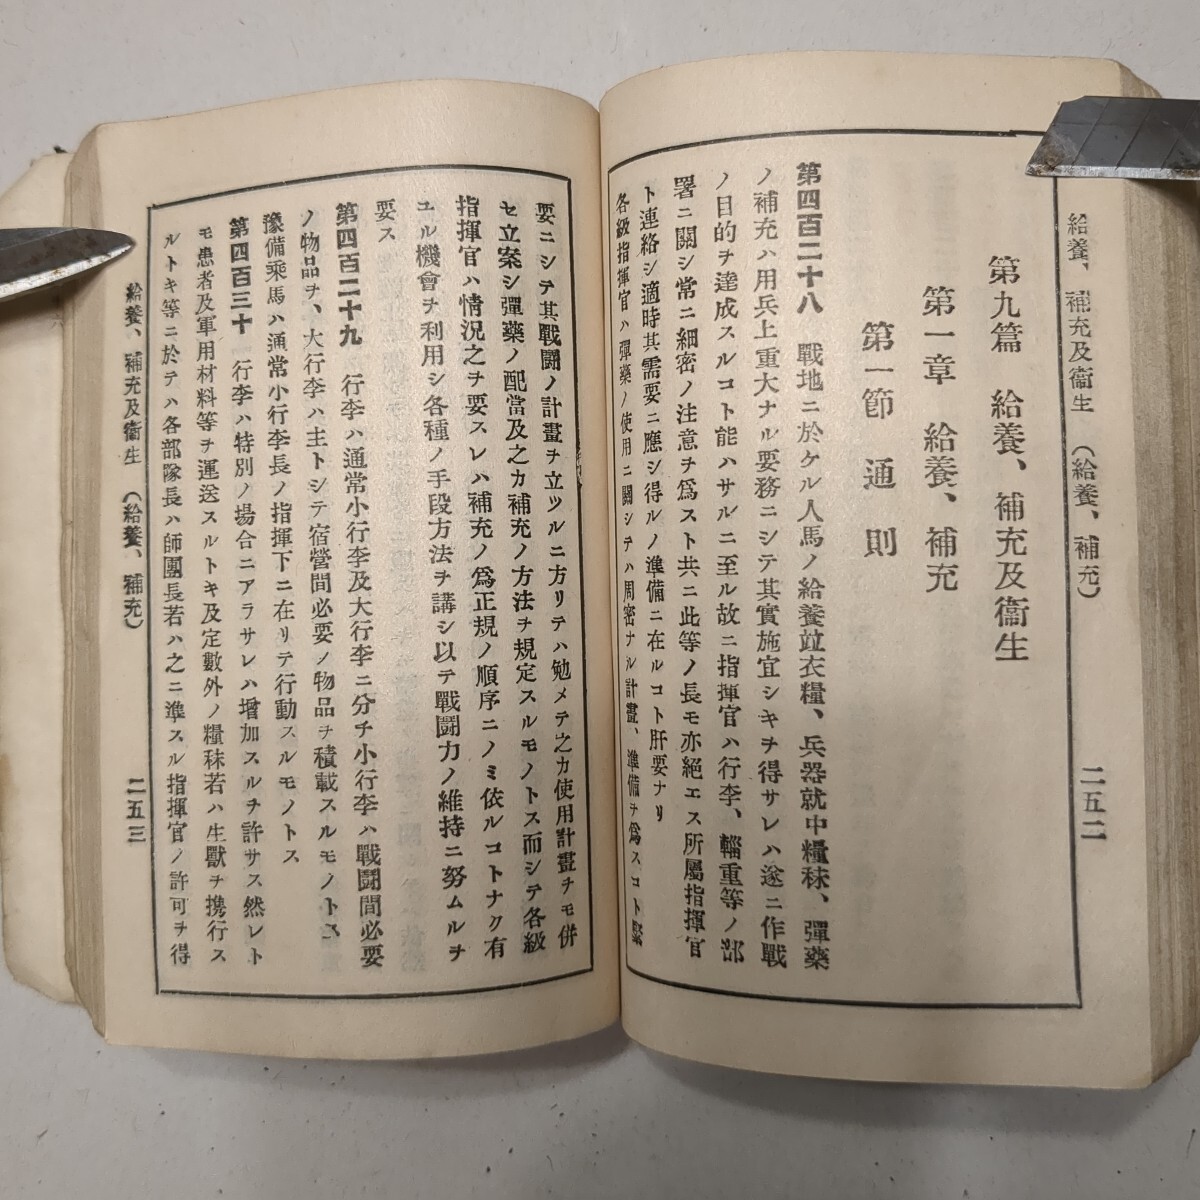 給養、補充及衞生　（給養、補充）　二五二
第九篇　給養、補充及衞生
第一章　給養、補充
第一節　通則
第四百二十八　戰地ニ於ケル人馬ノ給養竝衣糧、兵器就中糧秣、彈藥
ノ補充ハ用兵上重大ナル要務ニシテ其實施宜シキヲ得サレハ遂ニ作戰
ノ目的ヲ達成スルコト能ハサルニ至ル故ニ指揮官ハ行李、輜重等ノ部
署ニ關シ常ニ細密ノ注意ヲ爲スト共ニ此等ノ長モ亦絕エス所屬指揮官
ト連絡シ適時其需要ニ應シ得ルノ準備ニ在ルコト肝要ナリ
各級指揮官ハ彈藥ノ使用ニ關シテハ周密ナル計畫、準備ヲ爲スコト緊
要ニシテ其戰鬪ノ計畫ヲ立ツルニ方リテハ勉メテ之カ使用計畫ヲモ併
セ立案シ彈藥ノ配當及之カ補充ノ方法ヲ規定スルモノトス而シテ各級
指揮官ハ情況之ヲ要スレハ補充ノ爲正規ノ順序ニノミ依ルコトナク有
ユル機會ヲ利用シ各種ノ手段方法ヲ講シ以テ戰鬪力ノ維持ニ努ムルヲ
要ス
第四百二十九　行李ハ通常小行李及大行李ニ分チ小行李ハ戰鬪間必要
ノ物品ヲ、大行李ハ主トシテ宿營間必要ノ物品ヲ積載スルモノトス
豫備乘馬ハ通常小行李長ノ指揮下ニ在リテ行動スルモノトス
第四百三十　行李ハ特別ノ場合ニアラサレハ增加スルヲ許サス然レト
モ患者及軍用材料等ヲ運送スルトキ及定數外ノ糧秣若ハ生獸ヲ携行ス
ルトキ等ニ於テハ各部隊長ハ師團長若ハ之ニ準スル指揮官ノ許可ヲ得
給養、補充及衞生　（給養、補充）　二五三